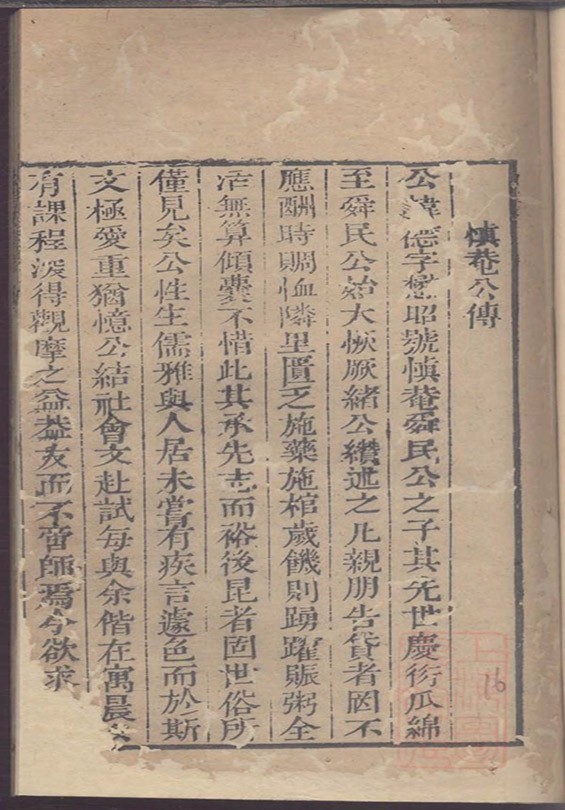 慎菴公傳
公諱德字懋昭號慎菴舜民公之子其先世慶衍瓜綿
至舜民公始大恢厥緒公纘述之凡親朋告貸者罔不
應酬時賙恤隣里匱乏施藥施棺歲饑則踴躍賑粥全
活無算傾囊不惜此其承先志而裕後昆者固世俗所
僅見矣公性生儒雅與人居未嘗有疾言遽色而於斯
文極愛重猶憶公結社會文赴試每與余偕在寓晨
有課程深得觀摩之益益友而不啻師焉今欲求
16